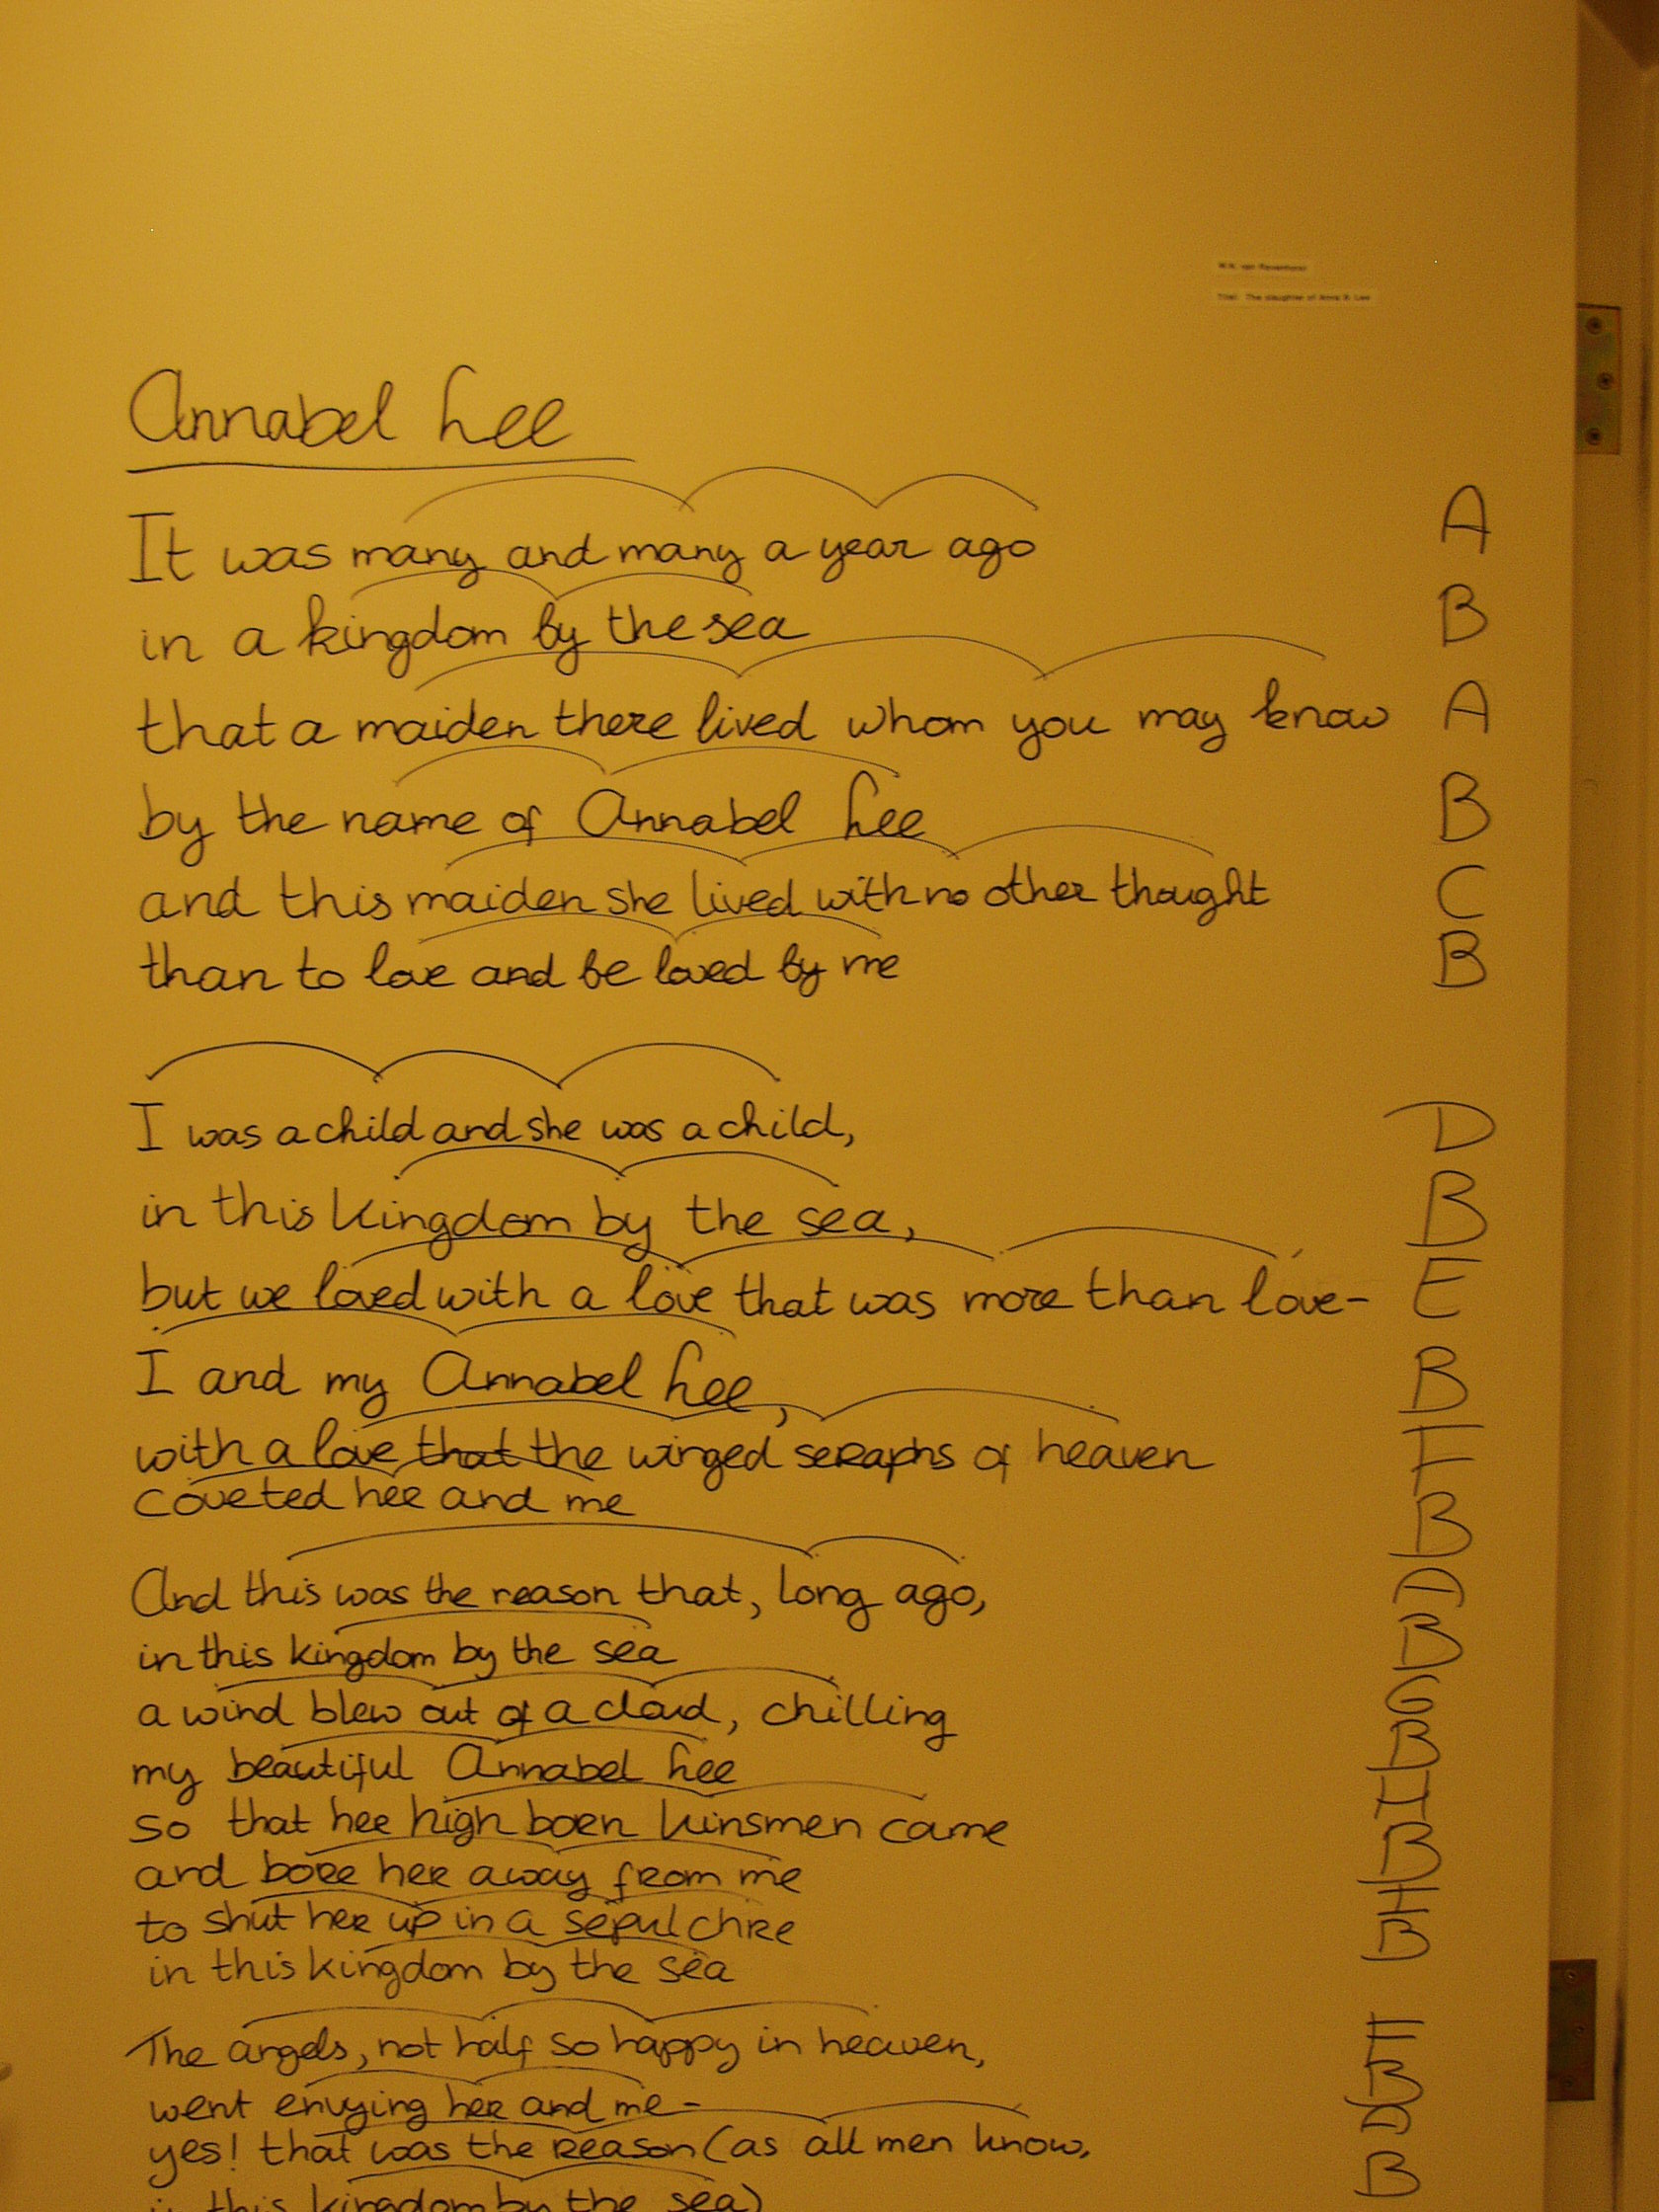 W.N. van Ravenhorst
Titel: The daughter of Anna B. Lee
Annabel Lee
It was many and many a year ago A
in a kingdom by the sea B
that a maiden there lived whom you may know A
by the name of Annabel Lee B
and this maiden she lived with no other thought C
than to love and be loved by me B
I was a child and she was a child, D
in this kingdom by the sea, B
but we loved with a love that was more than love- E
I and my Annabel Lee, B
with a love that the winged seraphs of heaven F
coveted her and me B
And this was the reason that, long ago, A
in this kingdom by the sea B
a wind blew out of a cloud, chilling G
my beautiful Annabel Lee B
so that her high born kinsmen came H
and bore her away from me B
to shut her up in a sepulchre I
in this kingdom by the sea B
The angels, not half so happy in heaven, F
went envying her and me - B
yes! that was the reason (as all men know, A
in this kingdom by the sea) B